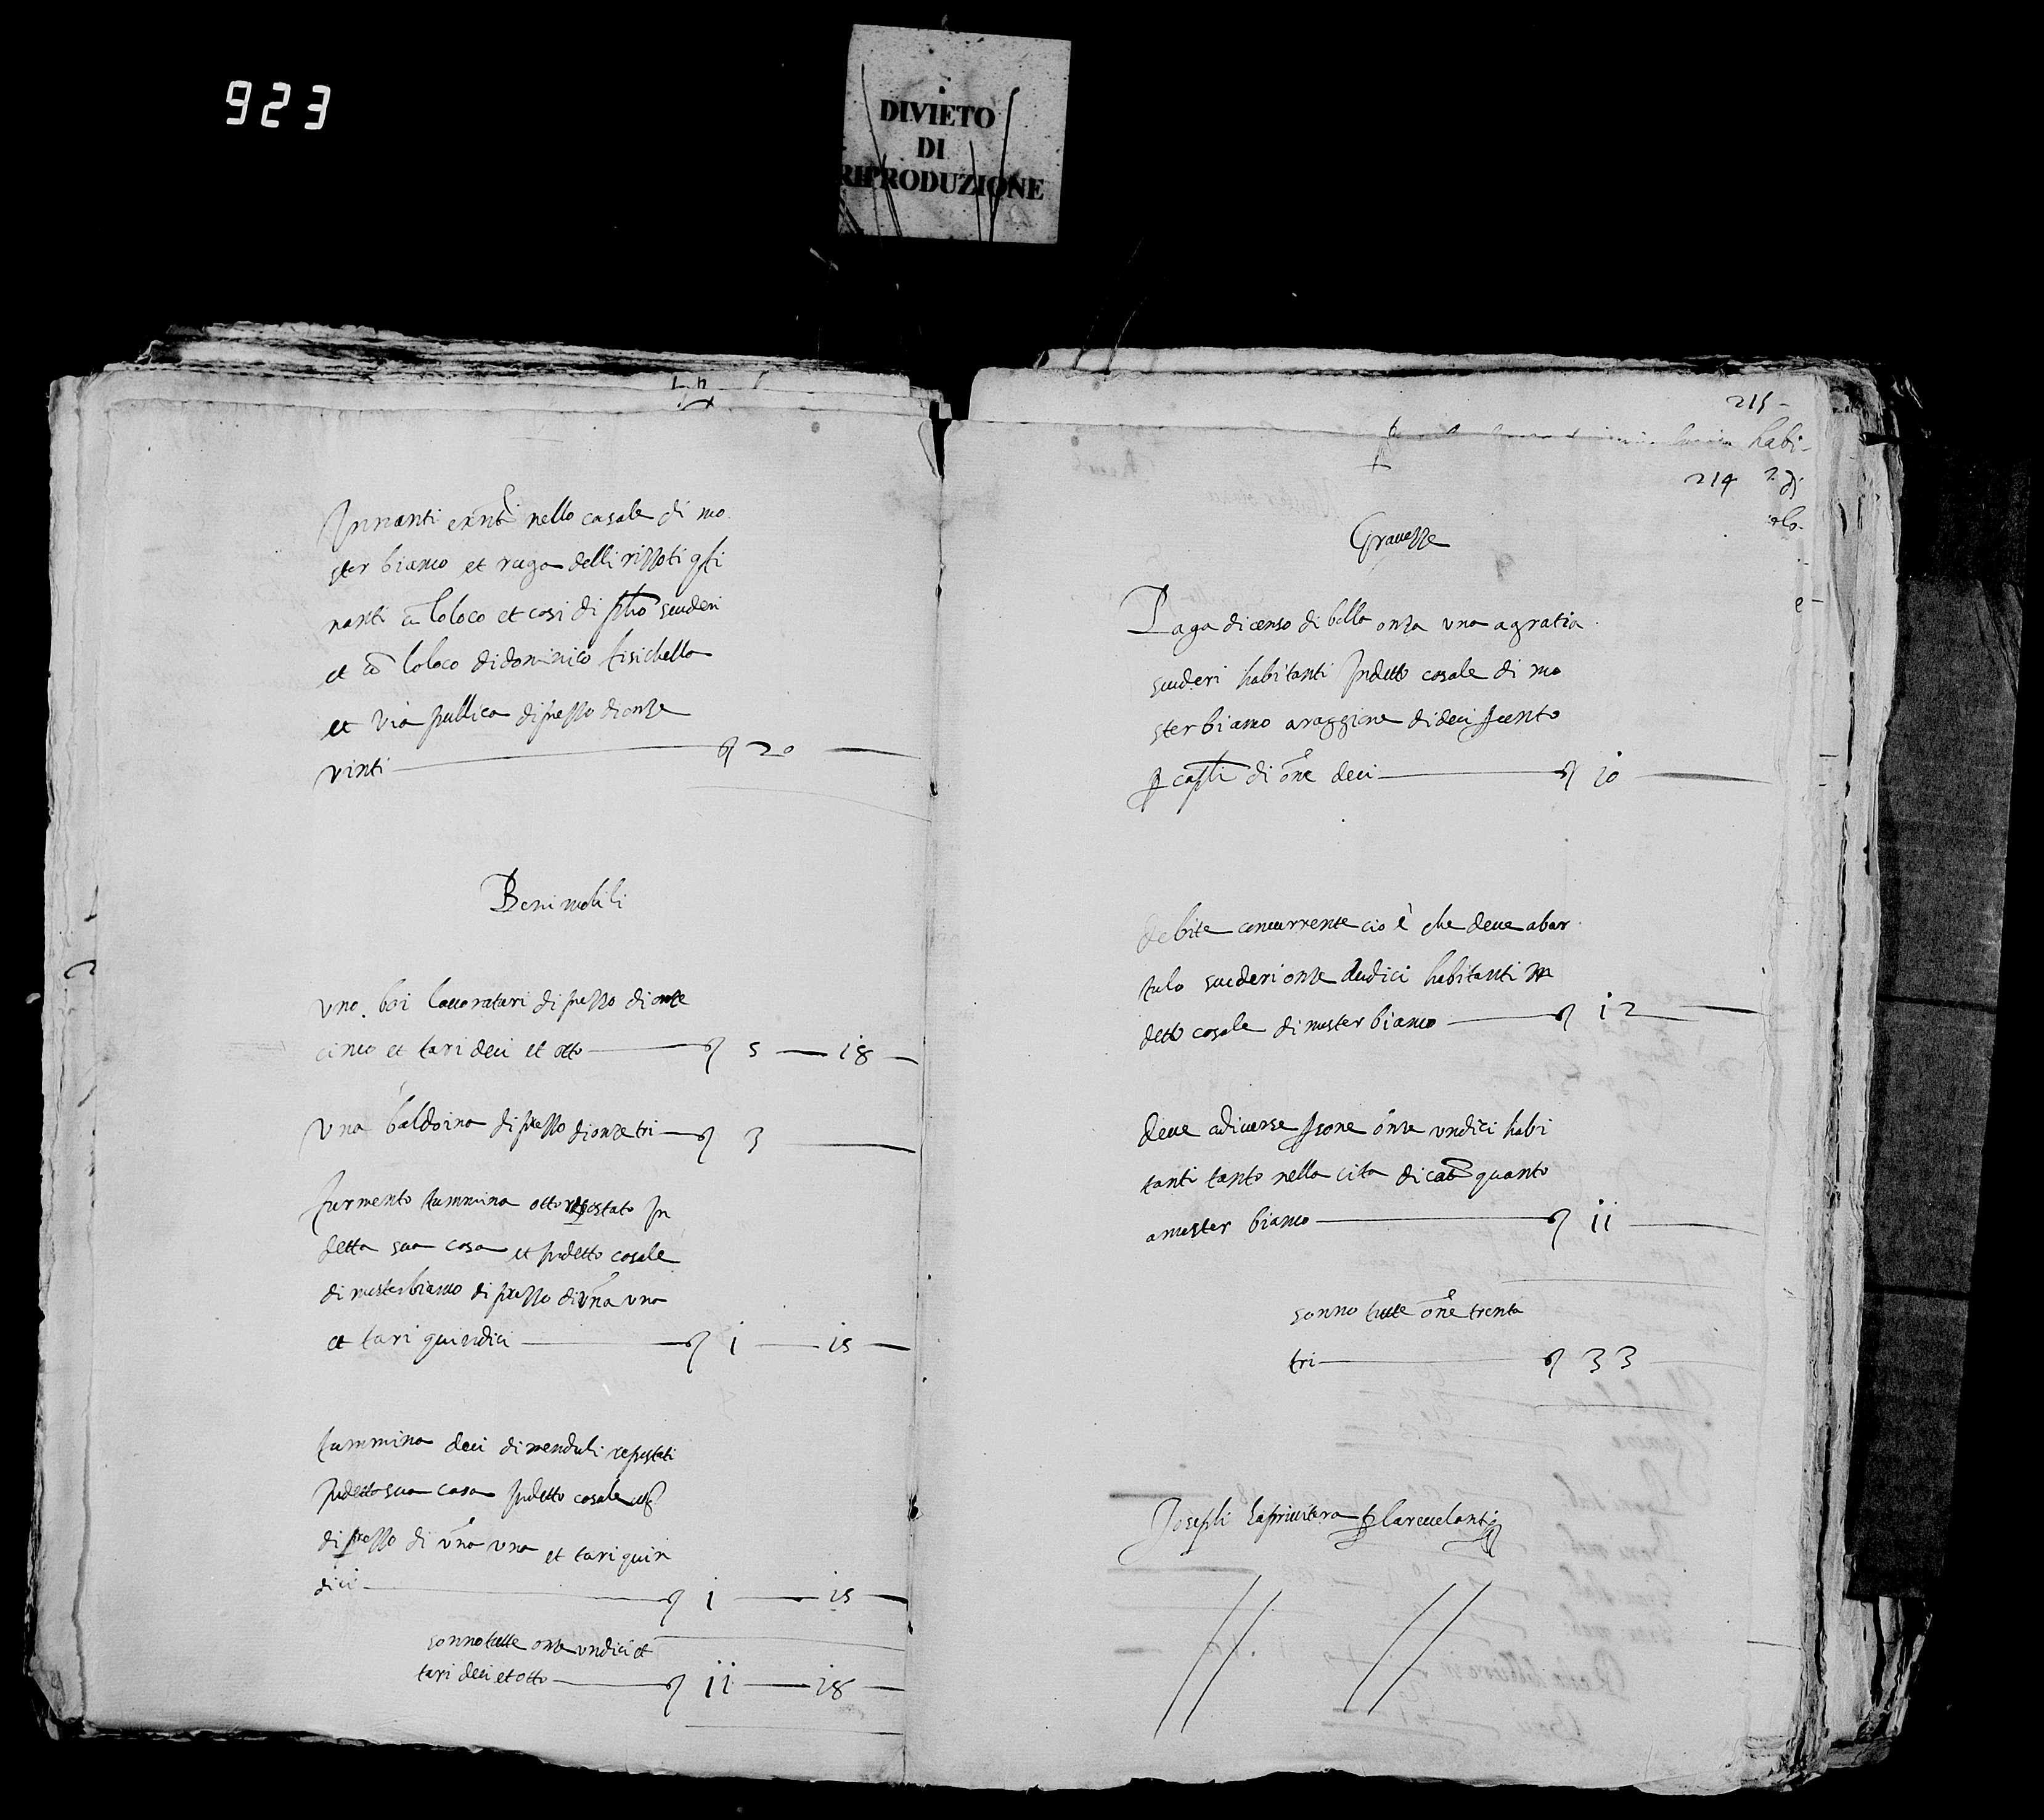 923
DIVIETO
DI
RIPRODUZIONE
Innanti nello casale di mo
ster bianco et ruga delli rizzoti
nanti lo loco et casi di scuderi
et lo loco di dominico fisichella
et via publica di prezzo di onze
vinti 20
Beni mobili
uno boi lavoraturi di prezzo di onze
cinco et tari deci et otto 5 18
una baldoina di prezzo di onze tri 3
furmento tummina otto repostato in
detta sua casa et in detto casale
di mosterbianco di prezzo di una
et tari quindici 1 15
tummina deci di menduli repostati
in detta sua casa in detto casale
di prezzo di una et tari quin
dici 1 15
sonno tutte onze undici et
tari deci et otto 11 18
215
habi-
214
Gravezze
Paga di censo di bolla onza una a gratia
scuderi habitanti in detto casale di mo
ster bianco a raggione di deci per cento
di onze deci 10
debite concurrente cio è che deve a bar
tulo scuderi onze dudici habitanti in
detto casale di moster bianco 12
deve a diverse persone onze undici habi
tanti tanto nella cita di quanto
a moster bianco 11
sonno tutte onze trenta
tri 33
Joseph la privitera